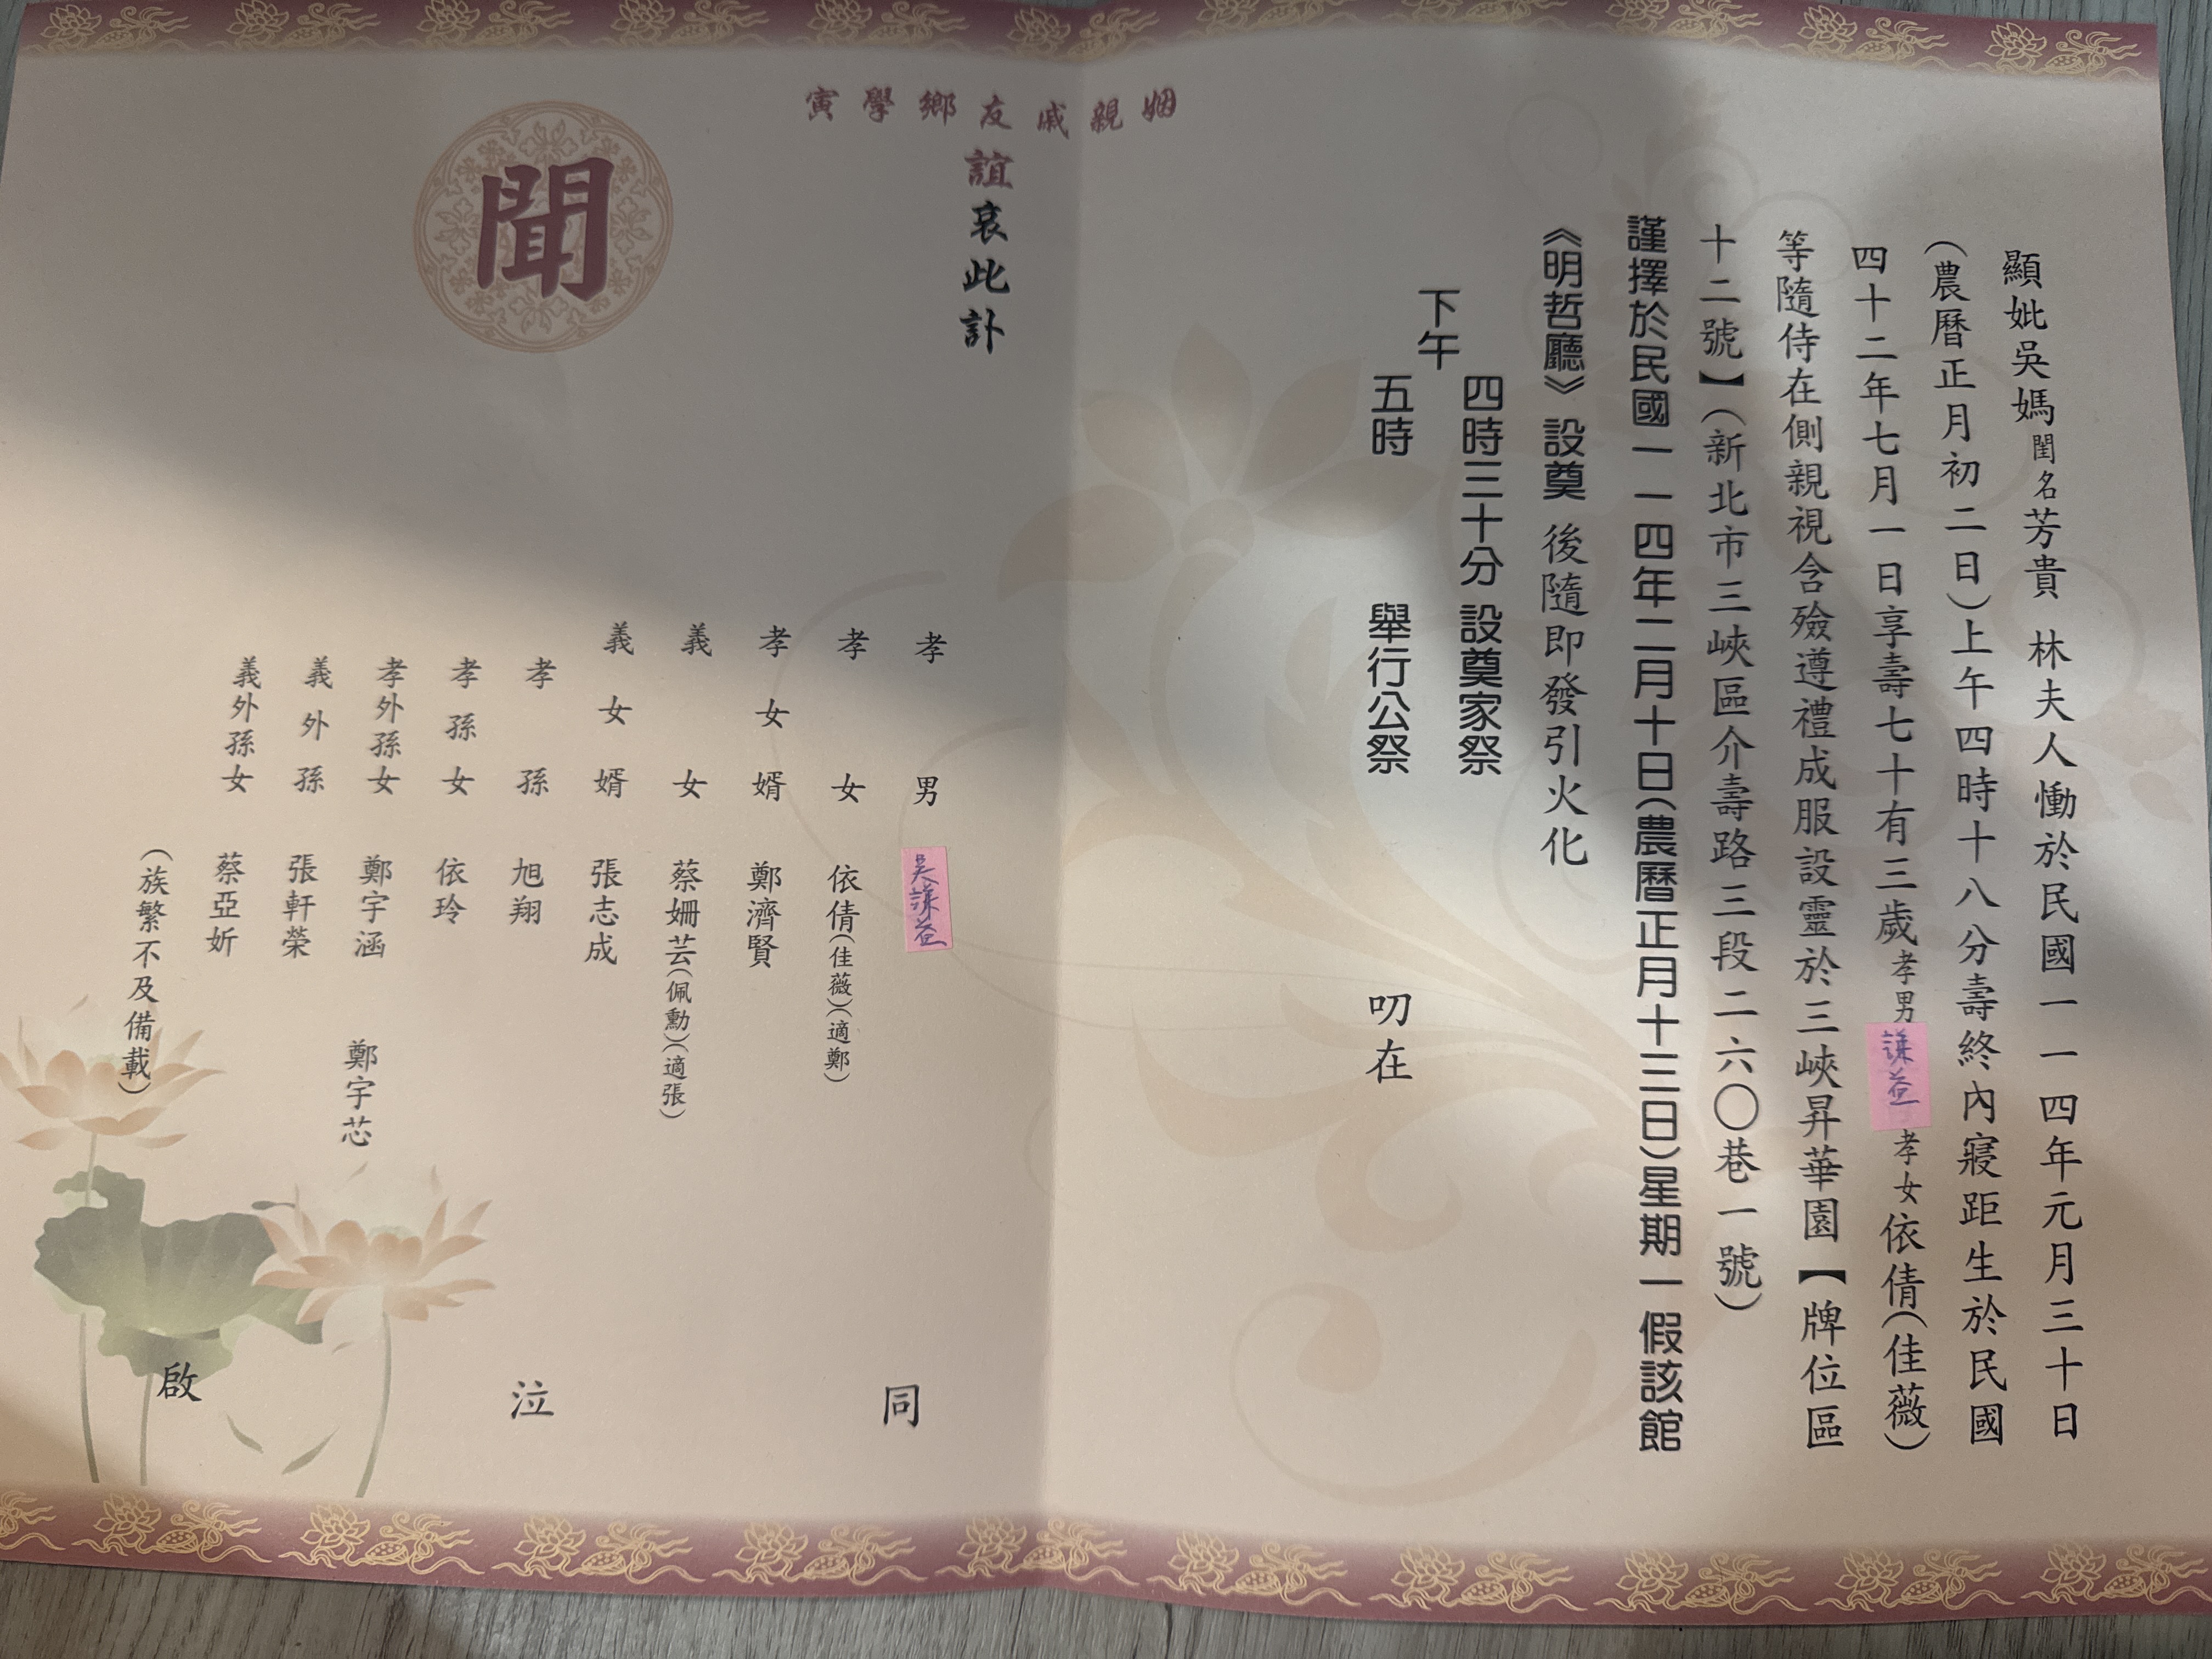 顯妣吳媽閨名芳貴 林夫人慟於民國一一四年元月三十日
(農曆正月初二日)上午四時十八分壽終內寢距生於民國
四十二年七月一日享壽七十有三歲孝男謙益孝女依倩(佳薇)
等隨侍在側親視含殮遵禮成服設靈於三峽昇華園【牌位區
十二號】(新北市三峽區介壽路三段二六〇巷一號)
謹擇於民國一一四年二月十日(農曆正月十三日)星期一假該館
《明哲廳》設奠 後隨即發引火化
下午
四時三十分 設奠家祭
五時 舉行公祭
叨在
姻親戚友鄉學寅
誼哀此訃
聞
孝男 吳謙益
孝女 依倩(佳薇)(適鄭)
孝女婿 鄭濟賢
義女 蔡姍芸(佩勳)(適張)
義女婿 張志成
孝孫 旭翔
孝孫女 依玲
孝外孫女 鄭宇涵 鄭宇芯
義外孫 張軒榮
義外孫女 蔡亞妡
(族繁不及備載)
同
泣
啟